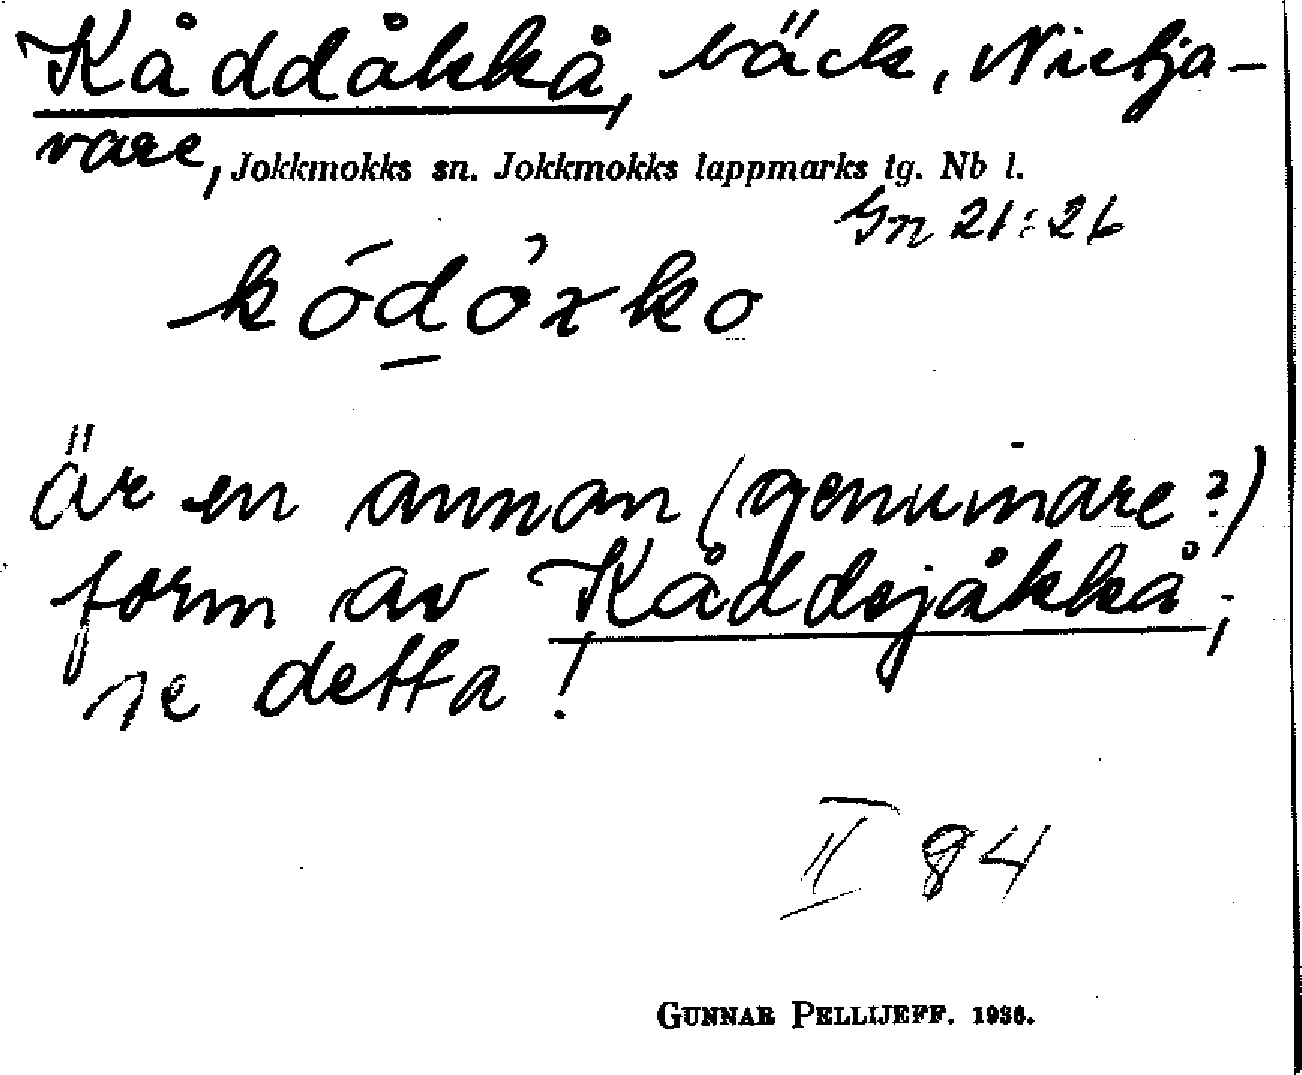 Kåddåkkå, bäck, Nietja-
vare, Jokkmokks sn. Jokkmokks lappmarks tg. Nb l.
Gn 21:26
kódòxko
Är en annan (genuinare?)
form av Kåddejåkkå;
se detta!
II 84
GUNNAR PELLIJEFF. 1936.